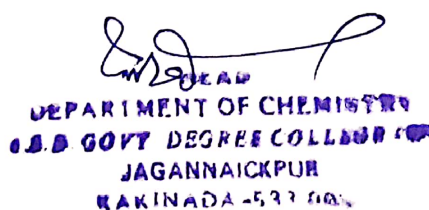 HEAD
DEPARTMENT OF CHEMISTRY
GOVT DEGREE COLLEGE
JAGANNAICKPUR
KAKINADA -533